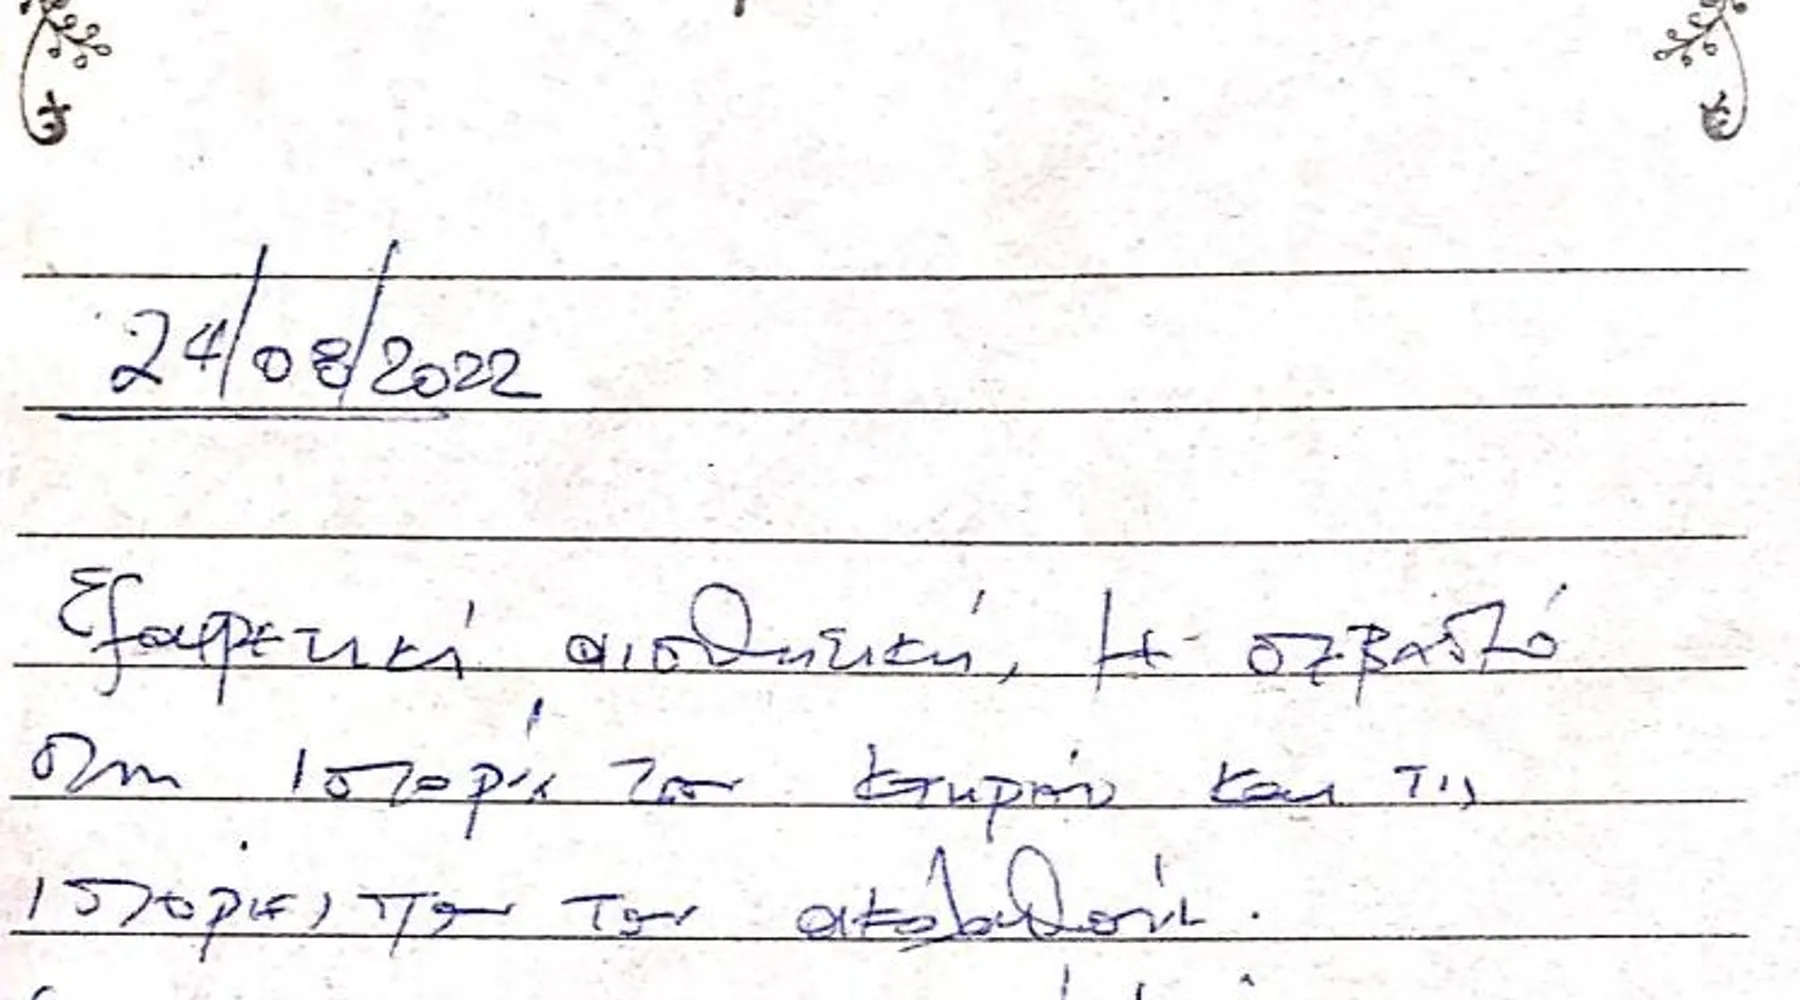 24/08/2022
Εξαιρετική αισθητική, με σεβασμό
στην ιστορία του κτηρίου και τις
ιστορίες που τον ακολουθούν.